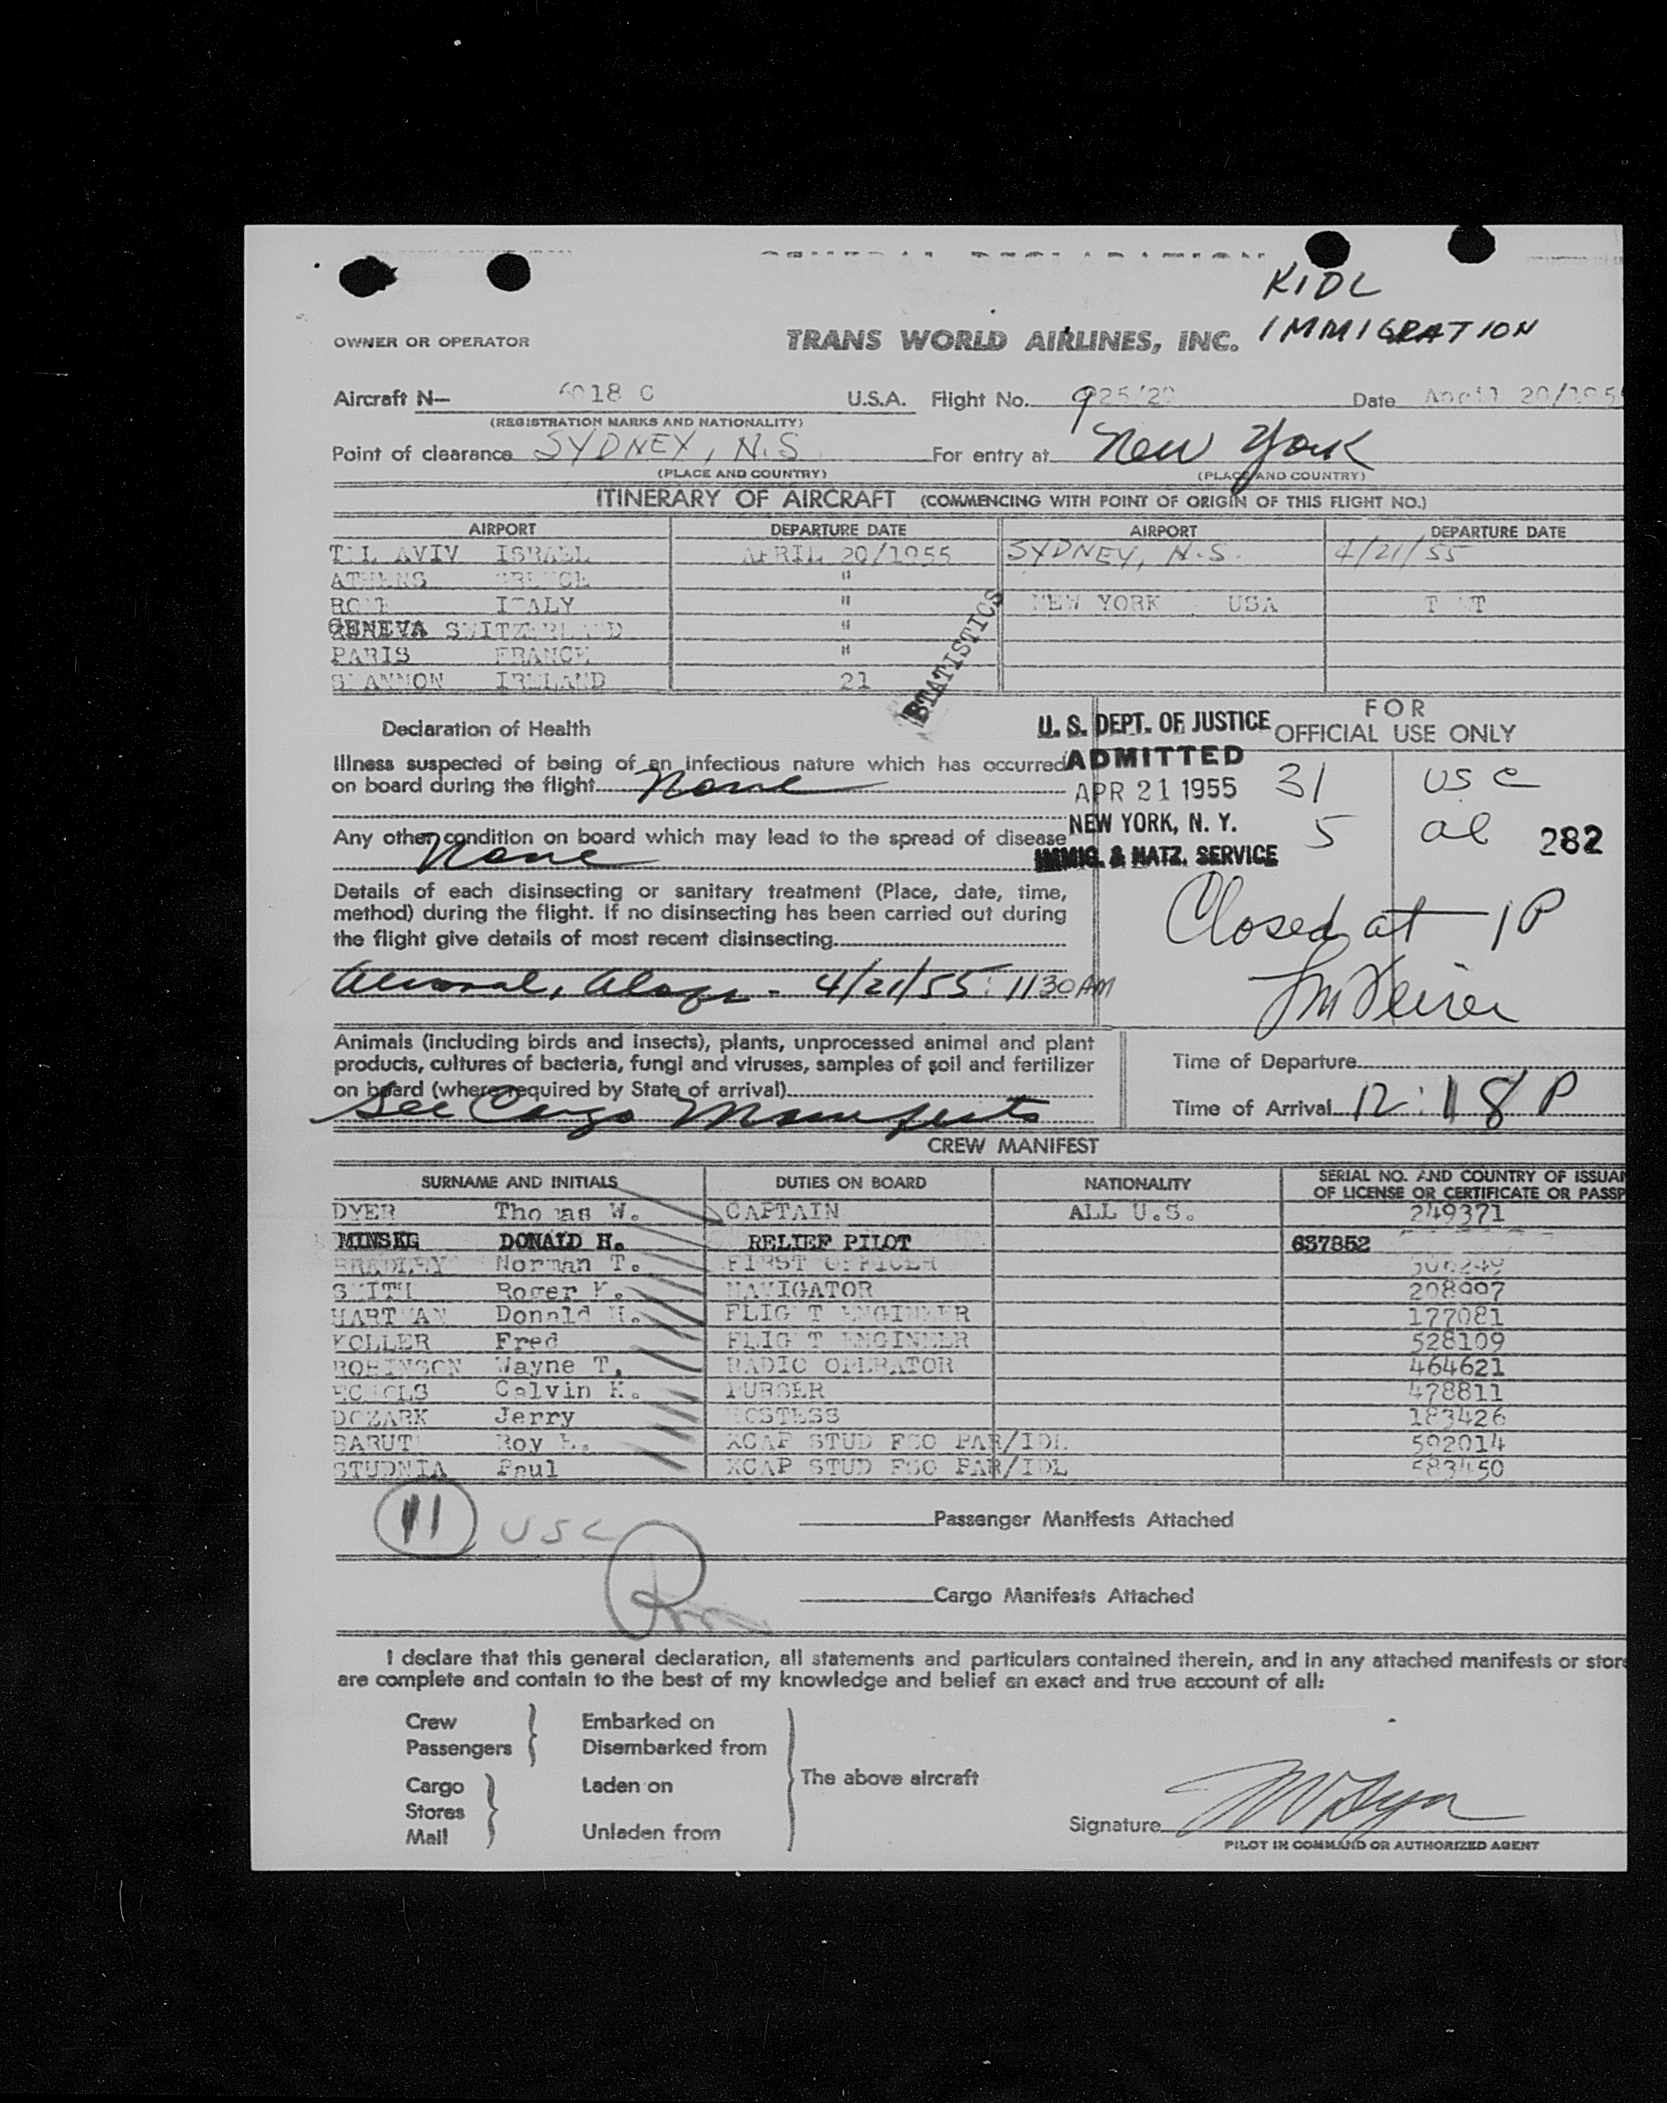 KIDL
IMMIGRATION
OWNER OR OPERATOR TRANS WORLD AIRLINES, INC.
Aircraft N— 6018 C U.S.A. Flight No. 925/20 Date April 20/1955
(REGISTRATION MARKS AND NATIONALITY)
Point of clearance SYDNEY, N.S. For entry at New York
(PLACE AND COUNTRY) (PLACE AND COUNTRY)
ITINERARY OF AIRCRAFT (COMMENCING WITH POINT OF ORIGIN OF THIS FLIGHT NO.)
AIRPORT DEPARTURE DATE AIRPORT DEPARTURE DATE
TEL AVIV ISRAEL APRIL 20/1955 SYDNEY, N.S. 4/21/55
ATHENS GREECE "
ROME ITALY " NEW YORK USA
GENEVA SWITZERLAND "
PARIS FRANCE "
SHANNON IRELAND 21
STATISTICS
Declaration of Health
Illness suspected of being of an infectious nature which has occurred
on board during the flight None
Any other condition on board which may lead to the spread of disease
None
Details of each disinsecting or sanitary treatment (Place, date, time,
method) during the flight. If no disinsecting has been carried out during
the flight give details of most recent disinsecting
4/21/55 : 1130 AM
U. S. DEPT. OF JUSTICE
ADMITTED
APR 21 1955
NEW YORK, N. Y.
IMMIG. & NATZ. SERVICE
FOR
OFFICIAL USE ONLY
31 USC
5 al 282
Closed at 1 P
Animals (including birds and insects), plants, unprocessed animal and plant
products, cultures of bacteria, fungi and viruses, samples of soil and fertilizer
on board (where required by State of arrival)
See Cargo Manifests
Time of Departure
Time of Arrival 12:18 P
CREW MANIFEST
SURNAME AND INITIALS DUTIES ON BOARD NATIONALITY SERIAL NO. AND COUNTRY OF ISSUAN
OF LICENSE OR CERTIFICATE OR PASSP
DYER Thomas W. CAPTAIN ALL U.S. 249371
DONALD H. RELIEF PILOT 637852
BRADLEY Norman T. FIRST OFFICER
SMITH Roger K. NAVIGATOR 208997
HARTMAN Donald H. FLIGHT ENGINEER 177081
KOLLER Fred FLIGHT ENGINEER 528109
ROBINSON Wayne T. RADIO OPERATOR 464621
ECHOLS Calvin K. PURSER 478811
DOZARK Jerry HOSTESS 183426
Roy XCAP STUD FSO PAR/IDL 592014
STUDNIA Paul XCAP STUD FSO PAR/IDL 583450
11 USC
Passenger Manifests Attached
Cargo Manifests Attached
I declare that this general declaration, all statements and particulars contained therein, and in any attached manifests or store
are complete and contain to the best of my knowledge and belief an exact and true account of all:
Crew Embarked on
Passengers Disembarked from
Cargo Laden on The above aircraft
Stores
Mail Unladen from
Signature TW Dyer
PILOT IN COMMAND OR AUTHORIZED AGENT